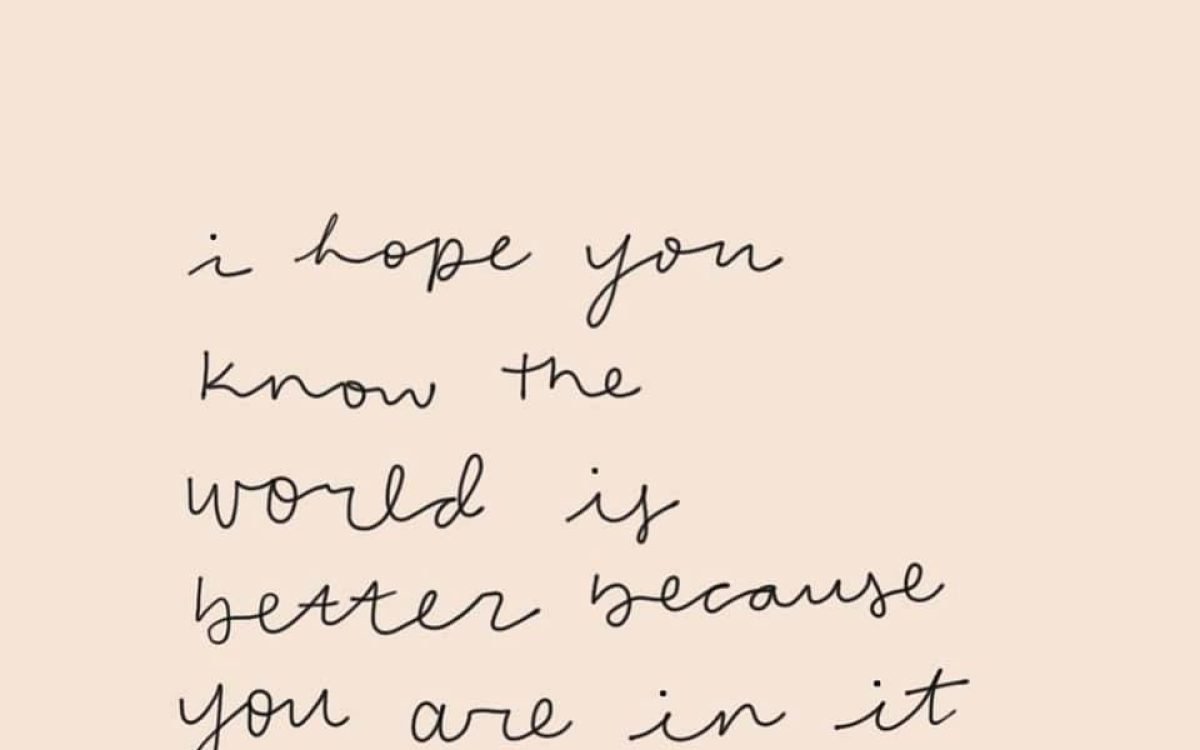 i hope you
know the
world is
better because
you are in it